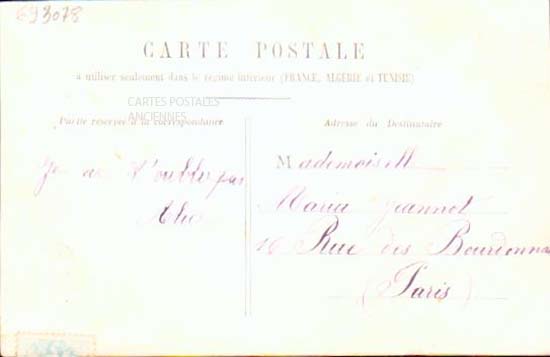 693078
CARTE POSTALE
à utiliser seulement dans le régime intérieur (FRANCE, ALGÉRIE et TUNISIE)
CARTES POSTALES
ANCIENNES
Partie réservée à la correspondance
Je ne t'oublie pas
Adresse du Destinataire
Mademoisell
Maria Jeannot
16 Rue des Bourdonnais
(Paris)